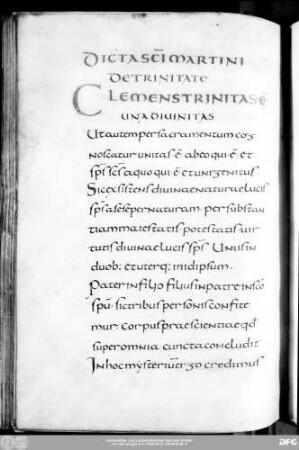 DICTA SCI MARTINI
DE TRINITATE
CLEMENS TRINITAS Ē
UNA DIVINITAS
Utautem per sacramentum cog
noscatur unitas ē ab eo qui ē et
sps scs a quo qui ē et unigenitus
Sic existens divinae naturae lucis
sps asése per naturam per substan
tiam maiestatis potestatis vir
tutis divinae lucis sps Unus in
duob; et uterq; in idipsum.
Pater in filio filius in patre in sco
spu sic tribus personis confite
mur. Corpus praescientiae qd
super omnia cuncta concludit
In hoc mysterium ergo credimus
DFG